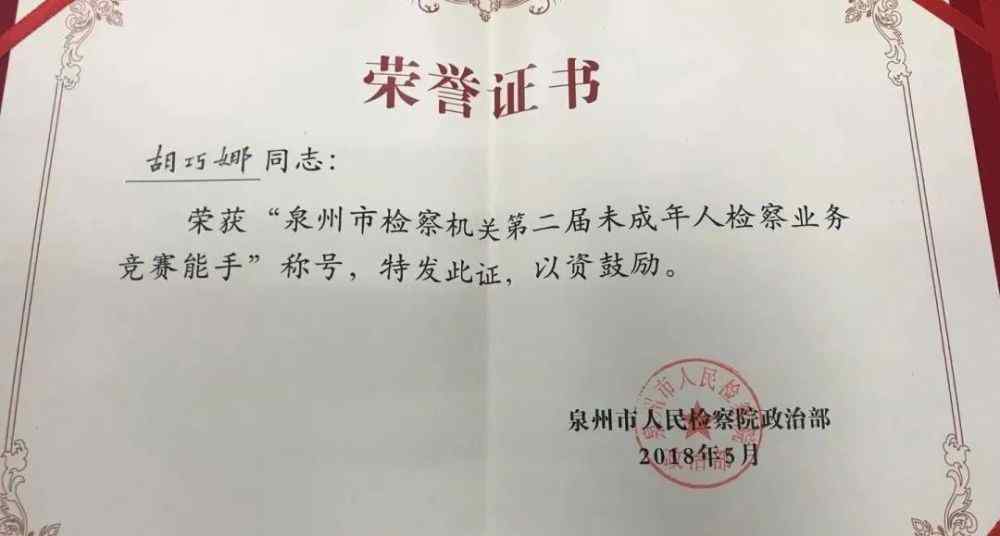 荣誉证书
胡巧娜同志：
荣获“泉州市检察机关第二届未成年人检察业务
竞赛能手”称号，特发此证，以资鼓励。
泉州市人民检察院政治部
2018年5月
泉州市人民检察院
政治部